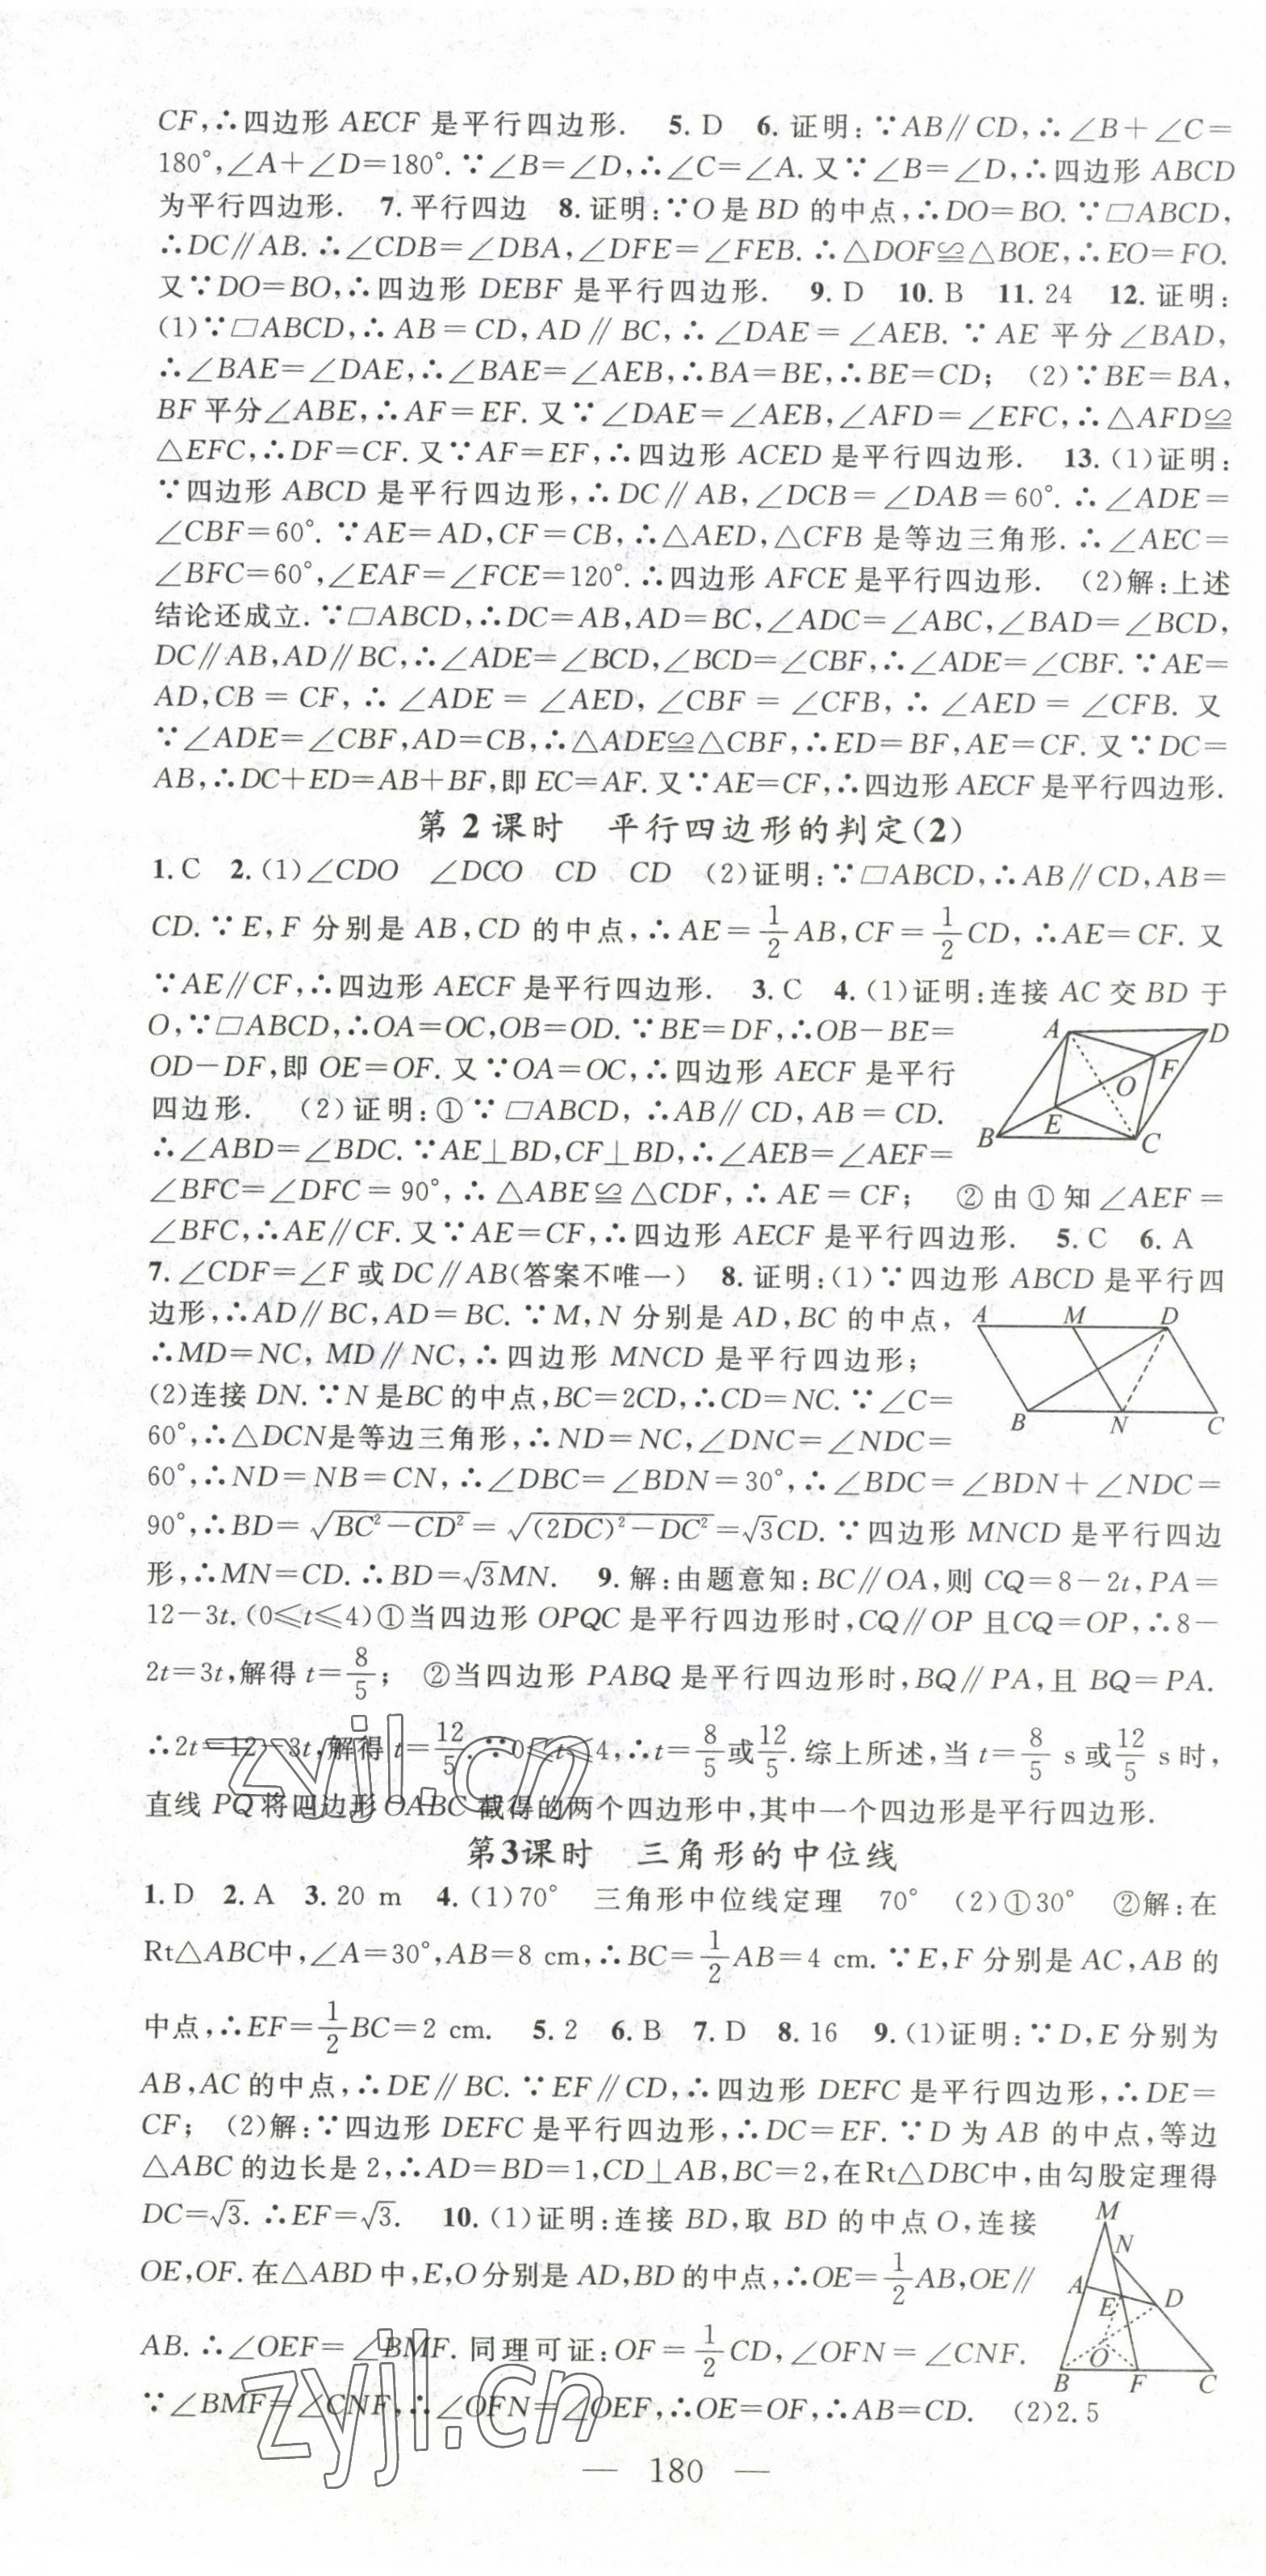 CF,∴四边形 AECF 是平行四边形. 5. D 6. 证明:∵AB∥CD,∴∠B+∠C=
180°,∠A+∠D=180°.∵∠B=∠D,∴∠C=∠A.又∵∠B=∠D,∴四边形 ABCD
为平行四边形. 7. 平行四边 8. 证明:∵O 是 BD 的中点,∴DO=BO.∵▱ABCD,
∴DC∥AB.∴∠CDB=∠DBA,∠DFE=∠FEB.∴△DOF≌△BOE,∴EO=FO.
又∵DO=BO,∴四边形 DEBF 是平行四边形. 9. D 10. B 11. 24 12. 证明:
(1)∵▱ABCD,∴AB=CD,AD∥BC,∴∠DAE=∠AEB.∵AE 平分∠BAD,
∴∠BAE=∠DAE,∴∠BAE=∠AEB,∴BA=BE,∴BE=CD; (2)∵BE=BA,
BF 平分∠ABE,∴AF=EF.又∵∠DAE=∠AEB,∠AFD=∠EFC,∴△AFD≌
△EFC,∴DF=CF.又∵AF=EF,∴四边形 ACED 是平行四边形. 13. (1)证明:
∵四边形 ABCD 是平行四边形,∴DC∥AB,∠DCB=∠DAB=60°.∴∠ADE=
∠CBF=60°.∵AE=AD,CF=CB,∴△AED,△CFB 是等边三角形.∴∠AEC=
∠BFC=60°,∠EAF=∠FCE=120°.∴四边形 AFCE 是平行四边形. (2)解:上述
结论还成立.∵▱ABCD,∴DC=AB,AD=BC,∠ADC=∠ABC,∠BAD=∠BCD,
DC∥AB,AD∥BC,∴∠ADE=∠BCD,∠BCD=∠CBF,∴∠ADE=∠CBF.∵AE=
AD,CB=CF,∴∠ADE=∠AED,∠CBF=∠CFB,∴∠AED=∠CFB. 又
∵∠ADE=∠CBF,AD=CB,∴△ADE≌△CBF,∴ED=BF,AE=CF.又∵DC=
AB,∴DC+ED=AB+BF,即 EC=AF.又∵AE=CF,∴四边形 AECF 是平行四边形.
第 2 课时 平行四边形的判定(2)
1. C 2. (1)∠CDO ∠DCO CD CD (2)证明:∵▱ABCD,∴AB∥CD,AB=
CD.∵E,F 分别是 AB,CD 的中点,∴AE=1/2AB,CF=1/2CD,∴AE=CF. 又
∵AE∥CF,∴四边形 AECF 是平行四边形. 3. C 4. (1)证明:连接 AC 交 BD 于
O,∵▱ABCD,∴OA=OC,OB=OD.∵BE=DF,∴OB-BE=
OD-DF,即 OE=OF.又∵OA=OC,∴四边形 AECF 是平行
四边形. (2)证明:①∵▱ABCD,∴AB∥CD,AB=CD.
∴∠ABD=∠BDC.∵AE⊥BD,CF⊥BD,∴∠AEB=∠AEF=
A D F O E B C
∠BFC=∠DFC=90°,∴△ABE≌△CDF,∴AE=CF; ②由①知∠AEF=
∠BFC,∴AE∥CF.又∵AE=CF,∴四边形 AECF 是平行四边形. 5. C 6. A
7. ∠CDF=∠F 或 DC∥AB(答案不唯一) 8. 证明:(1)∵四边形 ABCD 是平行四
边形,∴AD∥BC,AD=BC.∵M,N 分别是 AD,BC 的中点,
∴MD=NC,MD∥NC,∴四边形 MNCD 是平行四边形;
(2)连接 DN.∵N 是BC 的中点,BC=2CD,∴CD=NC.∵∠C=
60°,∴△DCN是等边三角形,∴ND=NC,∠DNC=∠NDC=
A M D B N C
60°,∴ND=NB=CN,∴∠DBC=∠BDN=30°,∴∠BDC=∠BDN+∠NDC=
90°,∴BD=√(BC²-CD²)=√((2DC)²-DC²)=√3CD.∵四边形 MNCD 是平行四边
形,∴MN=CD.∴BD=√3MN. 9. 解:由题意知:BC∥OA,则 CQ=8-2t,PA=
12-3t.(0≤t≤4)①当四边形 OPQC 是平行四边形时,CQ∥OP 且CQ=OP,∴8-
2t=3t,解得 t=8/5; ②当四边形 PABQ 是平行四边形时,BQ∥PA,且 BQ=PA.
∴2t=12-3t,解得 t=12/5.∵0≤t≤4,∴t=8/5或12/5.综上所述,当 t=8/5 s 或12/5 s 时,
直线 PQ 将四边形 OABC 截得的两个四边形中,其中一个四边形是平行四边形.
第3课时 三角形的中位线
1. D 2. A 3. 20 m 4. (1)70° 三角形中位线定理 70° (2)①30° ②解:在
Rt△ABC中,∠A=30°,AB=8 cm,∴BC=1/2AB=4 cm.∵E,F 分别是 AC,AB 的
中点,∴EF=1/2BC=2 cm. 5. 2 6. B 7. D 8. 16 9. (1)证明:∵D,E 分别为
AB,AC 的中点,∴DE∥BC.∵EF∥CD,∴四边形 DEFC 是平行四边形,∴DE=
CF; (2)解:∵四边形 DEFC 是平行四边形,∴DC=EF.∵D 为 AB 的中点,等边
△ABC 的边长是 2,∴AD=BD=1,CD⊥AB,BC=2,在Rt△DBC中,由勾股定理得
DC=√3.∴EF=√3. 10. (1)证明:连接 BD,取 BD 的中点 O,连接
OE,OF.在△ABD 中,E,O分别是 AD,BD 的中点,∴OE=1/2AB,OE∥
AB.∴∠OEF=∠BMF.同理可证:OF=1/2CD,∠OFN=∠CNF.
∵∠BMF=∠CNF,∴∠OFN=∠OEF,∴OE=OF,∴AB=CD. (2)2.5
M N A E D O B F C
zyjl.cn
zyjl.cn
— 180 —